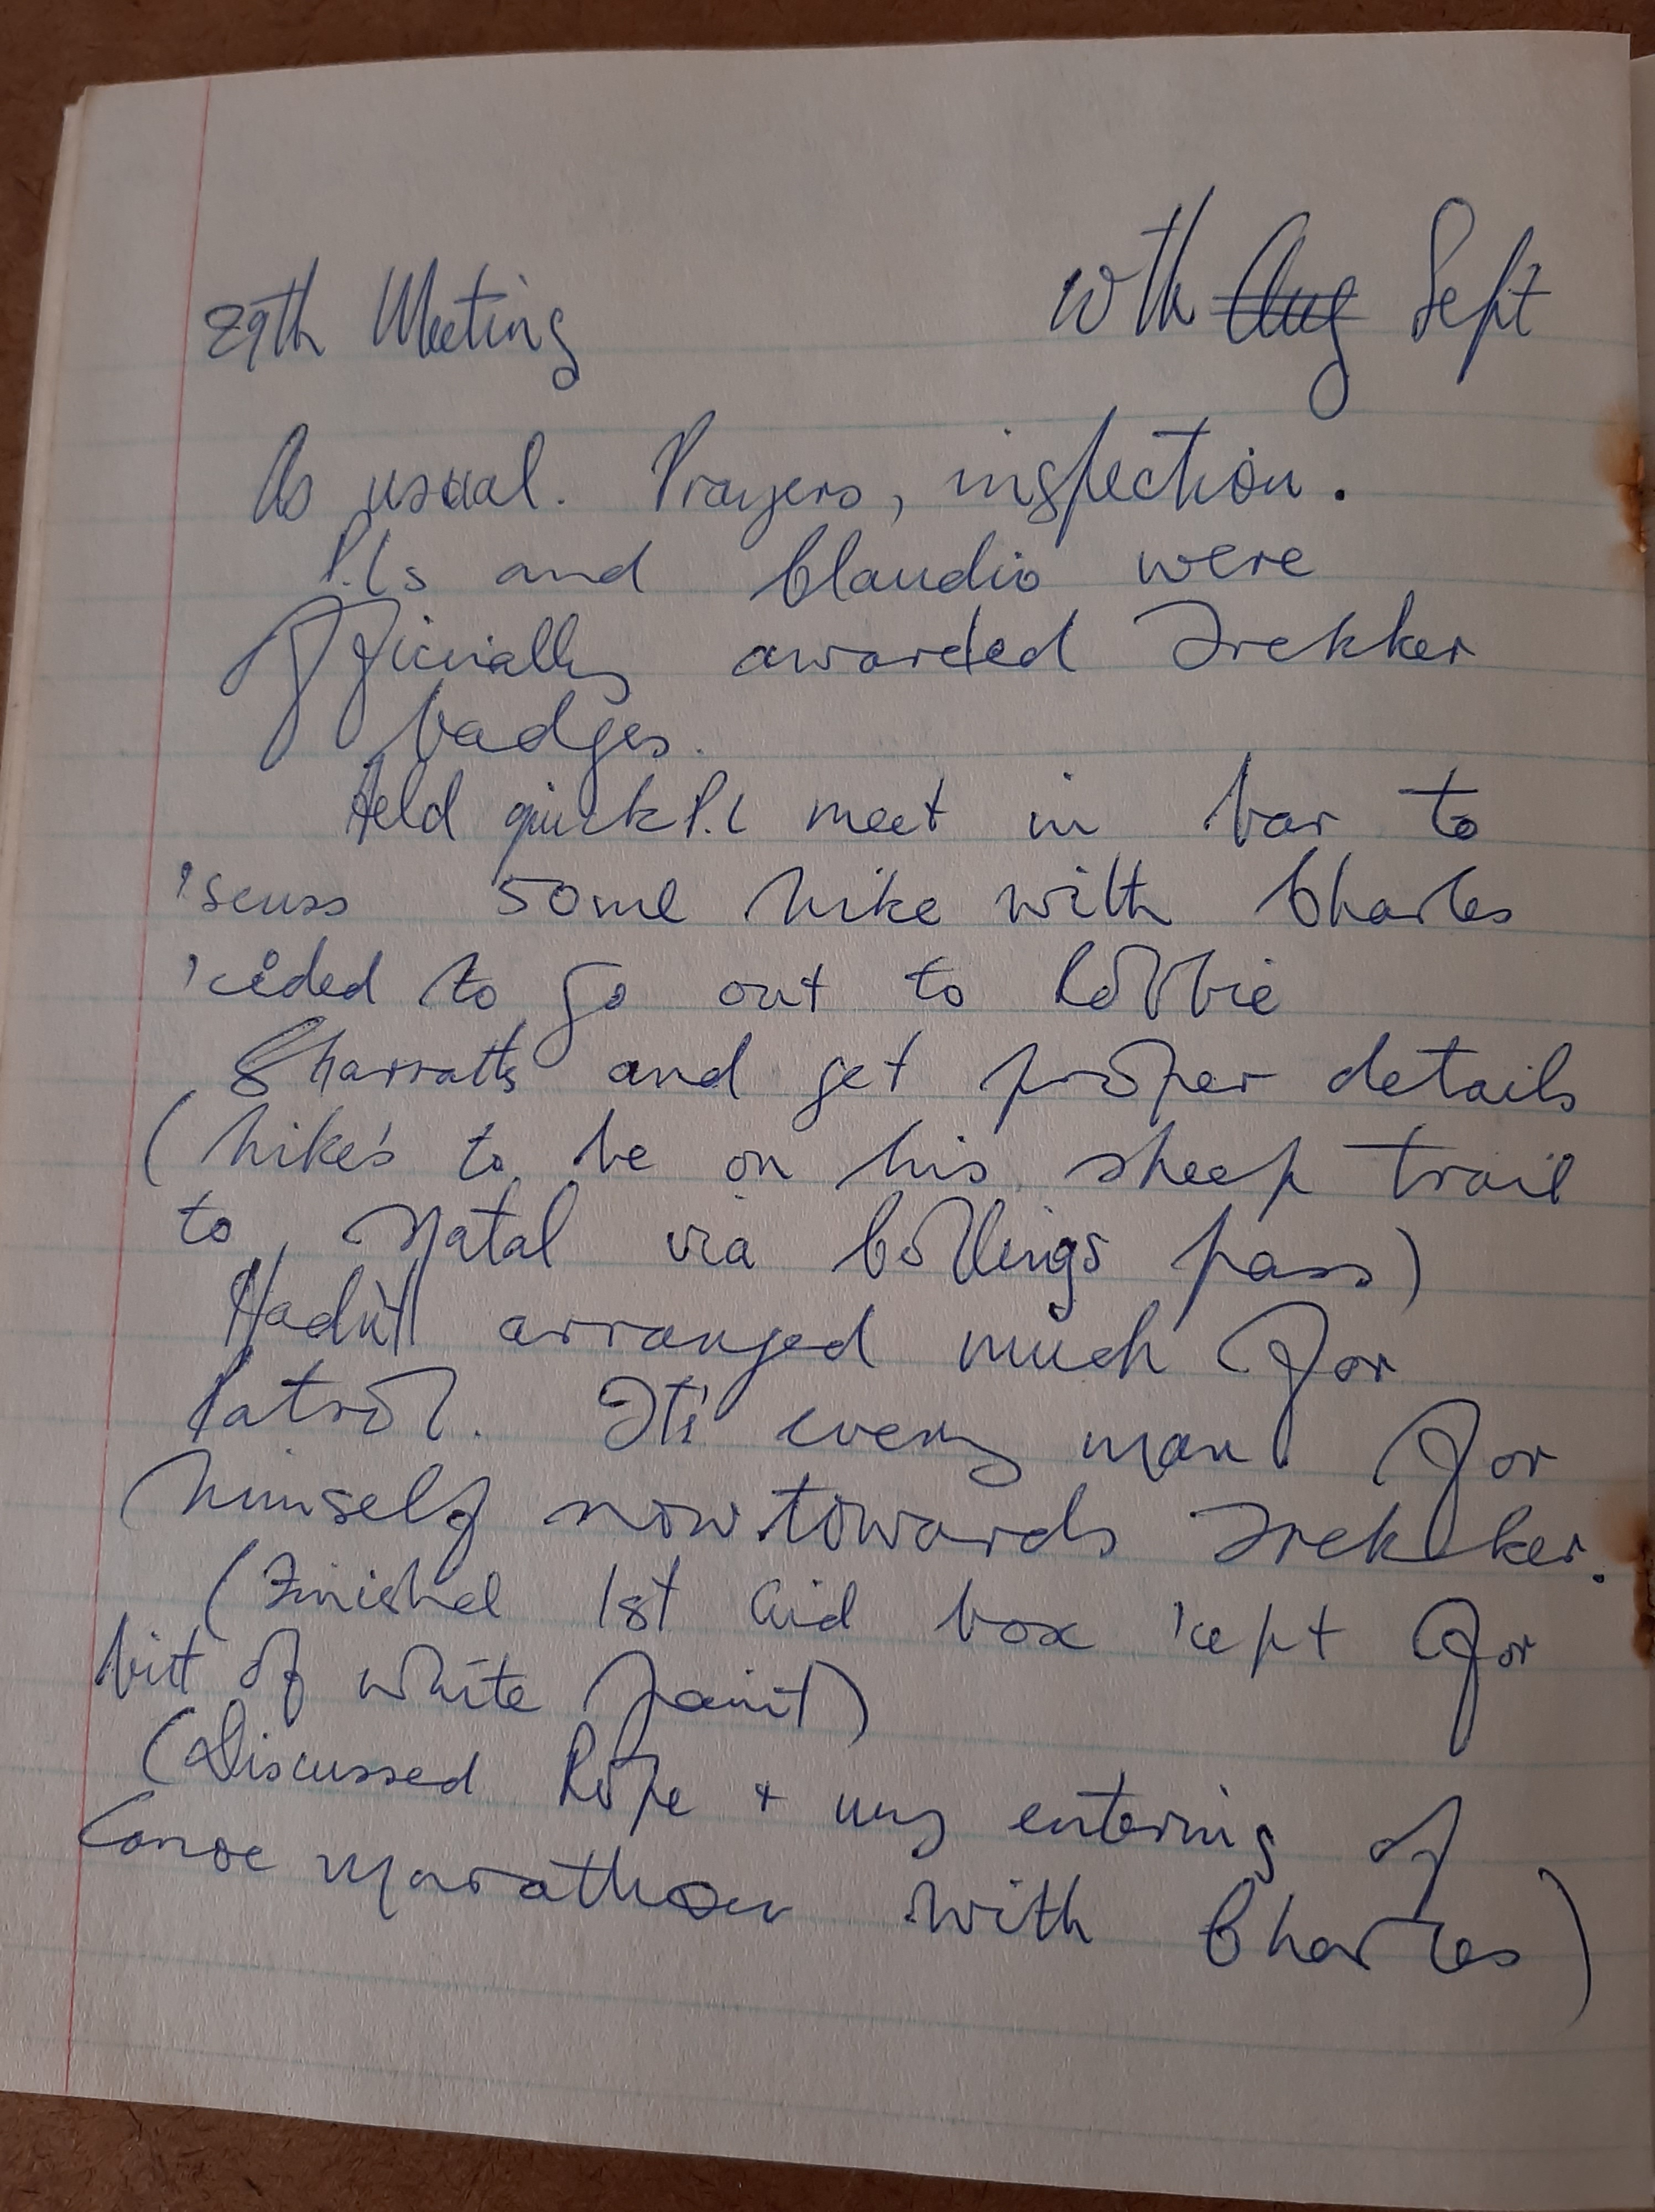 29th Meeting 10th Aug Sept
As usual. Prayers, inspection.
P.Ls and Claudio were
officially awarded Trekker
badges.
Held quick P.L meet in bar to
'scuss 50ml hike with Charles
'cided to go out to Robbie
Sharratts and get proper details
(hike's to be on his sheep trail
to Natal via Collings pass)
Hadn't arranged much for
Patrol. It's every man for
himself now towards Trekker.
(Finished 1st Aid box 'cept for
bit of white paint)
(Discussed Rope + my entering of
Canoe marathon with Charles)